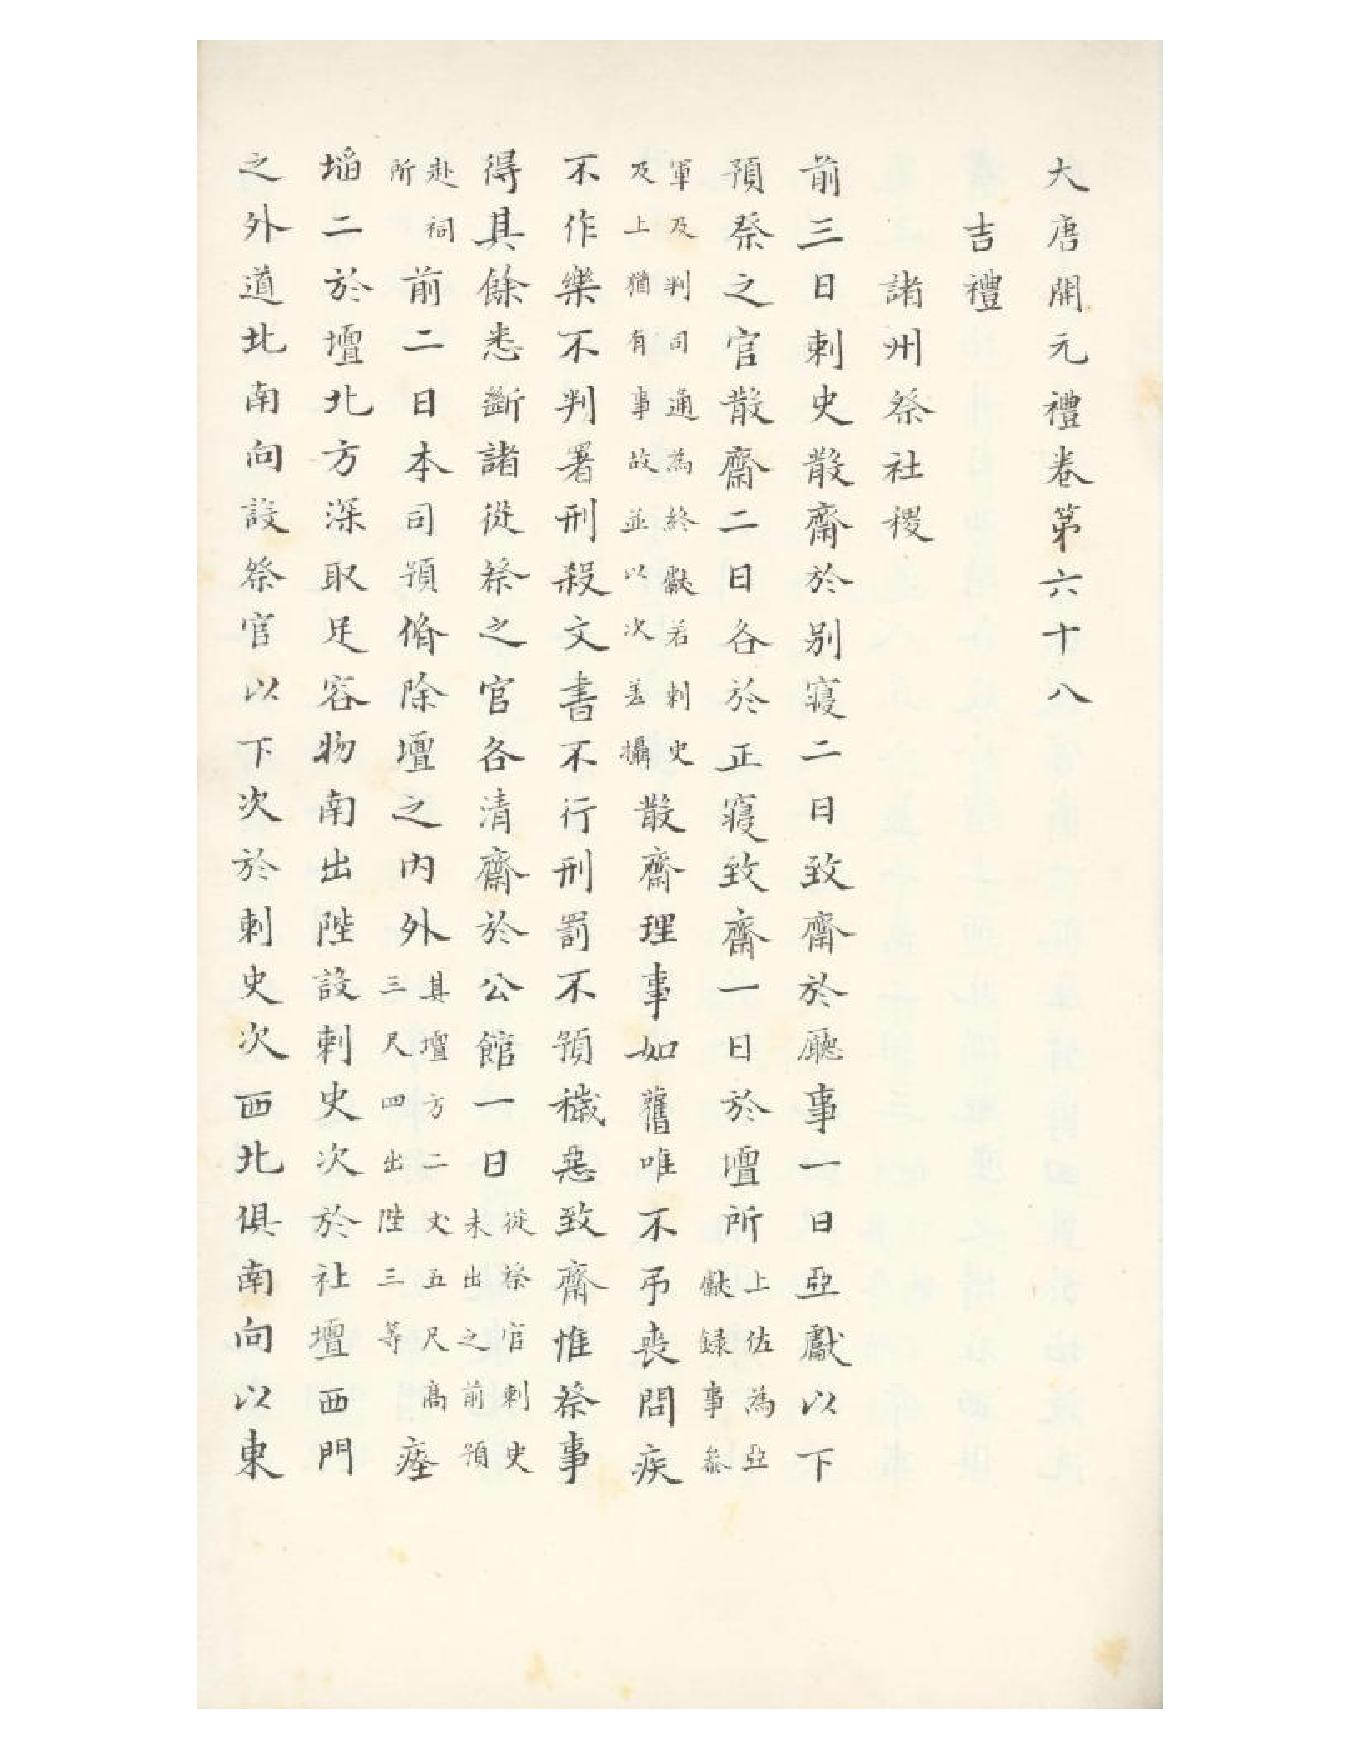 大唐開元禮卷第六十八
吉禮
諸州祭社稷
前三日刺史散齋於別寢二日致齋於廳事一日亞獻以下
預祭之官散齋二日各於正寢致齋一日於壇所上佐為亞獻録事參
軍及判司通為終獻若刺史及上猶有事故並以次差攝散齋理事如舊唯不弔喪問疾
不作樂不判署刑殺文書不行刑罰不預穢惡致齋惟祭事
得其餘悉斷諸從祭之官各清齋於公館一日從祭官刺史未出之前預
赴祠所前二日本司預脩除壇之內外其壇方二丈五尺高三尺四出陛三等瘞
埳二於壇北方深取足容物南出陛設刺史次於社壇西門
之外道北南向設祭官以下次於刺史次西北俱南向以東